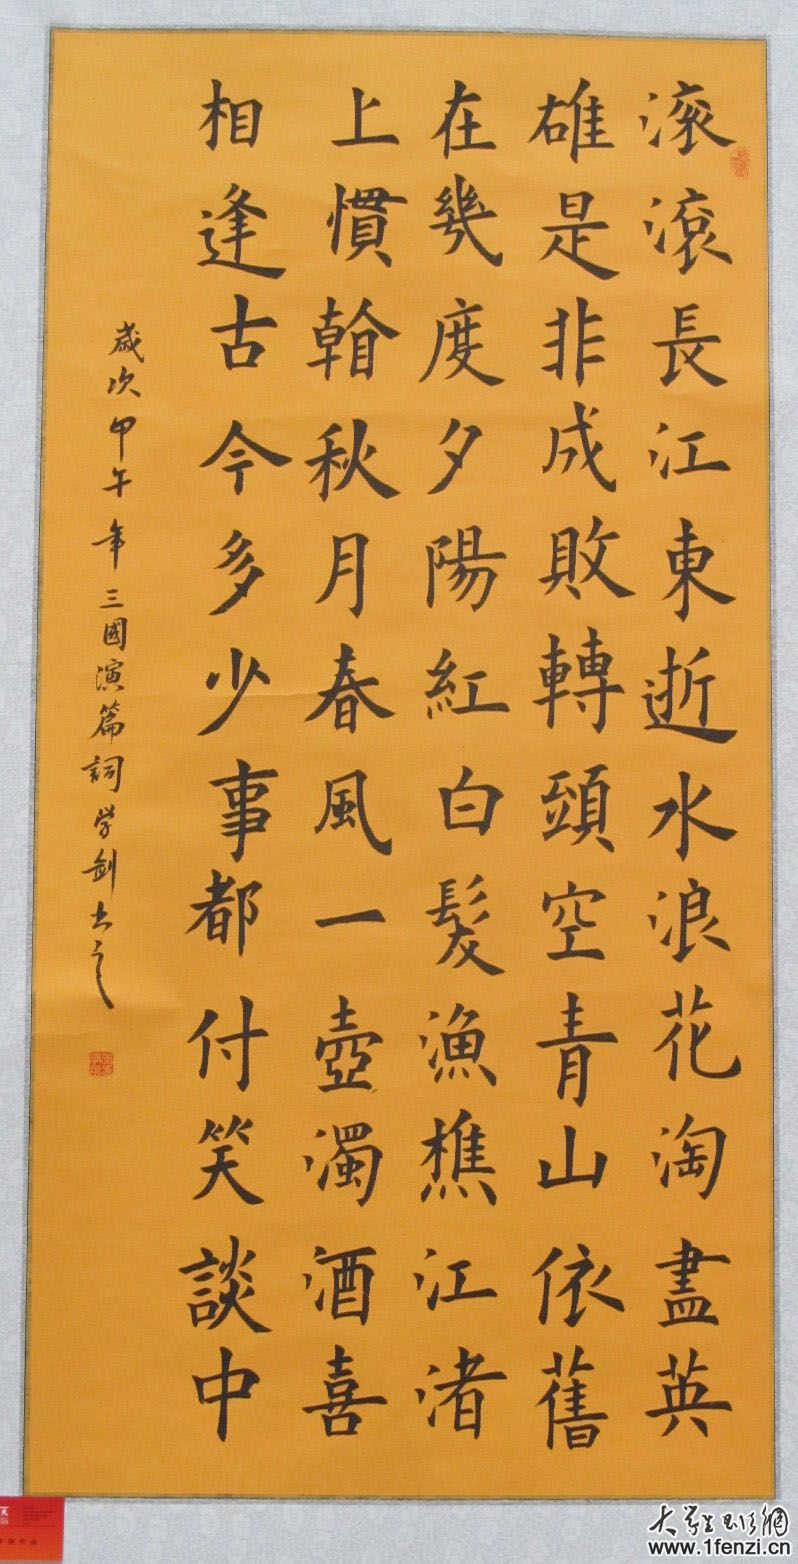 滚滚長江東逝水浪花淘盡英
雄是非成敗轉頭空青山依舊
在幾度夕陽紅白髮漁樵江渚
上慣翰秋月春風一壺濁酒喜
相逢古今多少事都付笑談中
歲次甲午年三國演篇詞学剑书之
大学生创业網
www.1fenzi.cn